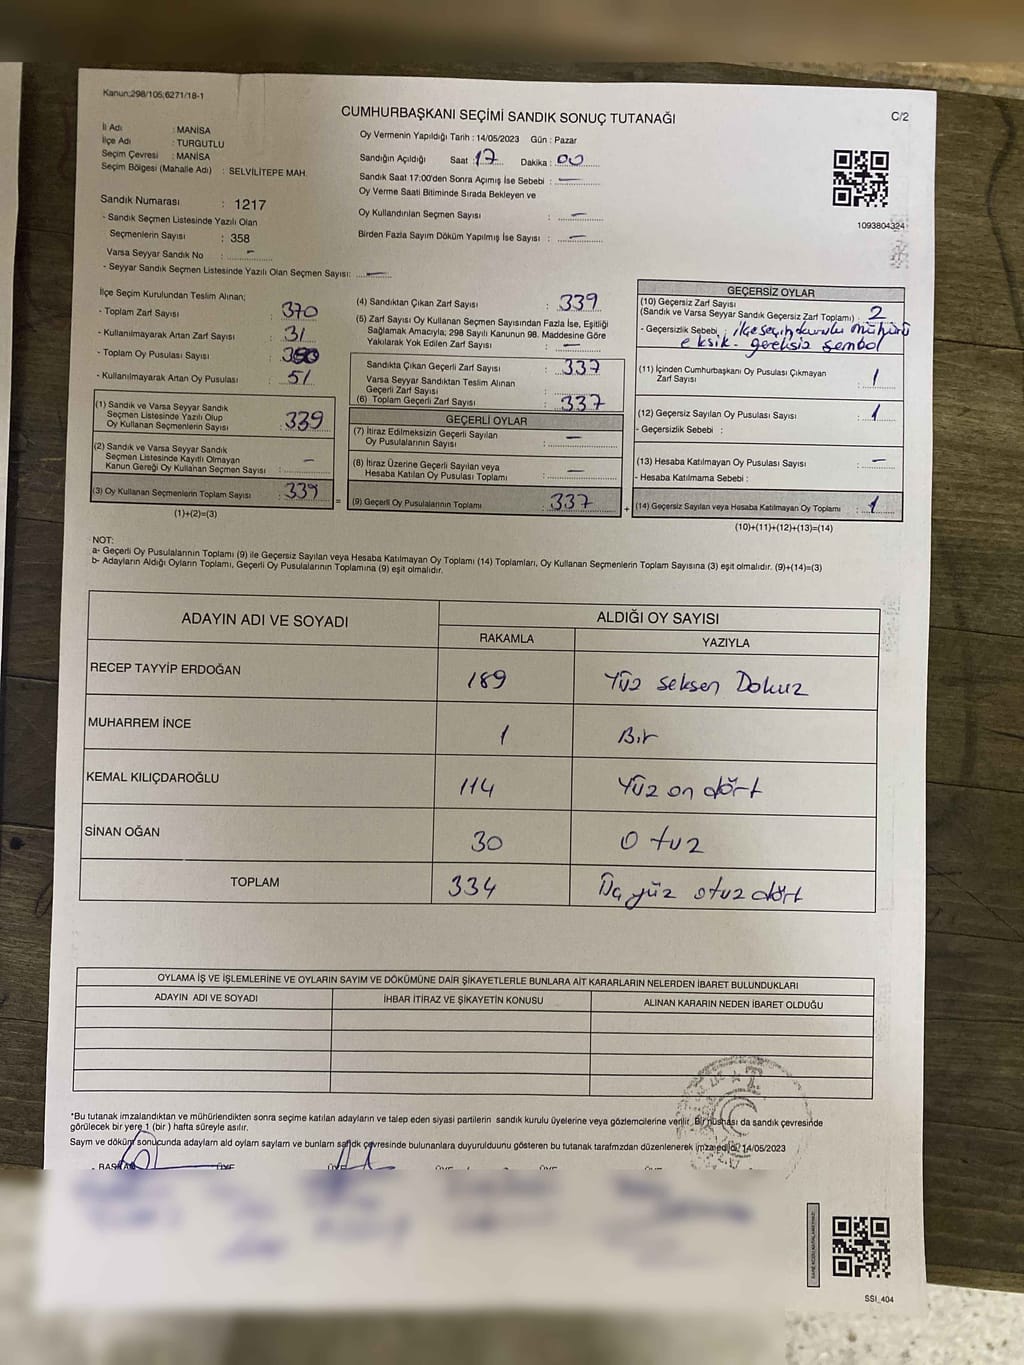 Kanun:298/105;6271/18-1
CUMHURBAŞKANI SEÇİMİ SANDIK SONUÇ TUTANAĞI
C/2
İl Adı : MANİSA
İlçe Adı : TURGUTLU
Seçim Çevresi : MANİSA
Seçim Bölgesi (Mahalle Adı) : SELVİLİTEPE MAH.
Sandık Numarası : 1217
- Sandık Seçmen Listesinde Yazılı Olan
Seçmenlerin Sayısı : 358
Varsa Seyyar Sandık No : -
- Seyyar Sandık Seçmen Listesinde Yazılı Olan Seçmen Sayısı: -
Oy Vermenin Yapıldığı Tarih : 14/05/2023 Gün : Pazar
Sandığın Açıldığı Saat : 17 Dakika : 00
Sandık Saat 17:00'den Sonra Açımış İse Sebebi : -
Oy Verme Saati Bitiminde Sırada Bekleyen ve
Oy Kullandırılan Seçmen Sayısı : -
Birden Fazla Sayım Döküm Yapılmış İse Sayısı : -
1093804324
İlçe Seçim Kurulundan Teslim Alınan;
- Toplam Zarf Sayısı : 370
- Kullanılmayarak Artan Zarf Sayısı : 31
- Toplam Oy Pusulası Sayısı :
- Kullanılmayarak Artan Oy Pusulası : 51
(1) Sandık ve Varsa Seyyar Sandık
Seçmen Listesinde Yazılı Olup
Oy Kullanan Seçmenlerin Sayısı : 339
(2) Sandık ve Varsa Seyyar Sandık
Seçmen Listesinde Kayıtlı Olmayan
Kanun Gereği Oy Kullanan Seçmen Sayısı : -
(3) Oy Kullanan Seçmenlerin Toplam Sayısı : 339
(1)+(2)=(3)
=
(4) Sandıktan Çıkan Zarf Sayısı : 339
(5) Zarf Sayısı Oy Kullanan Seçmen Sayısından Fazla İse, Eşitliği
Sağlamak Amacıyla; 298 Sayılı Kanunun 98. Maddesine Göre
Yakılarak Yok Edilen Zarf Sayısı : -
Sandıkta Çıkan Geçerli Zarf Sayısı : 337
Varsa Seyyar Sandıktan Teslim Alınan
Geçerli Zarf Sayısı :
(6) Toplam Geçerli Zarf Sayısı : 337
GEÇERLİ OYLAR
(7) İtiraz Edilmeksizin Geçerli Sayılan
Oy Pusulalarının Sayısı : -
(8) İtiraz Üzerine Geçerli Sayılan veya
Hesaba Katılan Oy Pusulası Toplamı : -
(9) Geçerli Oy Pusulalarının Toplamı : 337
+
GEÇERSİZ OYLAR
(10) Geçersiz Zarf Sayısı
(Sandık ve Varsa Seyyar Sandık Geçersiz Zarf Toplamı) : 2
- Geçersizlik Sebebi : ilçe seçim kurulu mührü
eksik - gereksiz sembol
(11) İçinden Cumhurbaşkanı Oy Pusulası Çıkmayan
Zarf Sayısı : 1
(12) Geçersiz Sayılan Oy Pusulası Sayısı : 1
- Geçersizlik Sebebi :
(13) Hesaba Katılmayan Oy Pusulası Sayısı : -
- Hesaba Katılmama Sebebi :
(14) Geçersiz Sayılan veya Hesaba Katılmayan Oy Toplamı : 1
(10)+(11)+(12)+(13)=(14)
NOT:
a- Geçerli Oy Pusulalarının Toplamı (9) ile Geçersiz Sayılan veya Hesaba Katılmayan Oy Toplamı (14) Toplamları, Oy Kullanan Seçmenlerin Toplam Sayısına (3) eşit olmalıdır. (9)+(14)=(3)
b- Adayların Aldığı Oyların Toplamı, Geçerli Oy Pusulalarının Toplamına (9) eşit olmalıdır.
ADAYIN ADI VE SOYADI ALDIĞI OY SAYISI
RAKAMLA YAZIYLA
RECEP TAYYİP ERDOĞAN 189 Yüz seksen Dokuz
MUHARREM İNCE 1 Bir
KEMAL KILIÇDAROĞLU 114 Yüz on dört
SİNAN OĞAN 30 Otuz
TOPLAM 334 Üç yüz otuz dört
OYLAMA İŞ VE İŞLEMLERİNE VE OYLARIN SAYIM VE DÖKÜMÜNE DAİR ŞİKAYETLERLE BUNLARA AİT KARARLARIN NELERDEN İBARET BULUNDUKLARI
ADAYIN ADI VE SOYADI İHBAR İTİRAZ VE ŞİKAYETİN KONUSU ALINAN KARARIN NEDEN İBARET OLDUĞU
*Bu tutanak imzalandıktan ve mühürlendikten sonra seçime katılan adayların ve talep eden siyasi partilerin sandık kurulu üyelerine veya gözlemcilerine verilir. Bir nushası da sandık çevresinde
görülecek bir yere 1 (bir ) hafta süreyle asılır.
Sayım ve döküm sonucunda adayların ald oylam saylam ve bunlam safıdk çevresinde bulunanlara duyurulduunu gösteren bu tutanak tarafmzdan düzenlenerek imza edildi. 14/05/2023
SSI_404